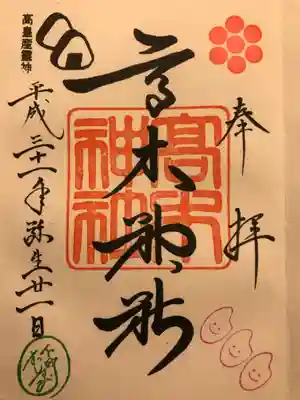 奉拝
高木神社
髙木神社
高皇産靈神
平成三十一年弥生廿一日